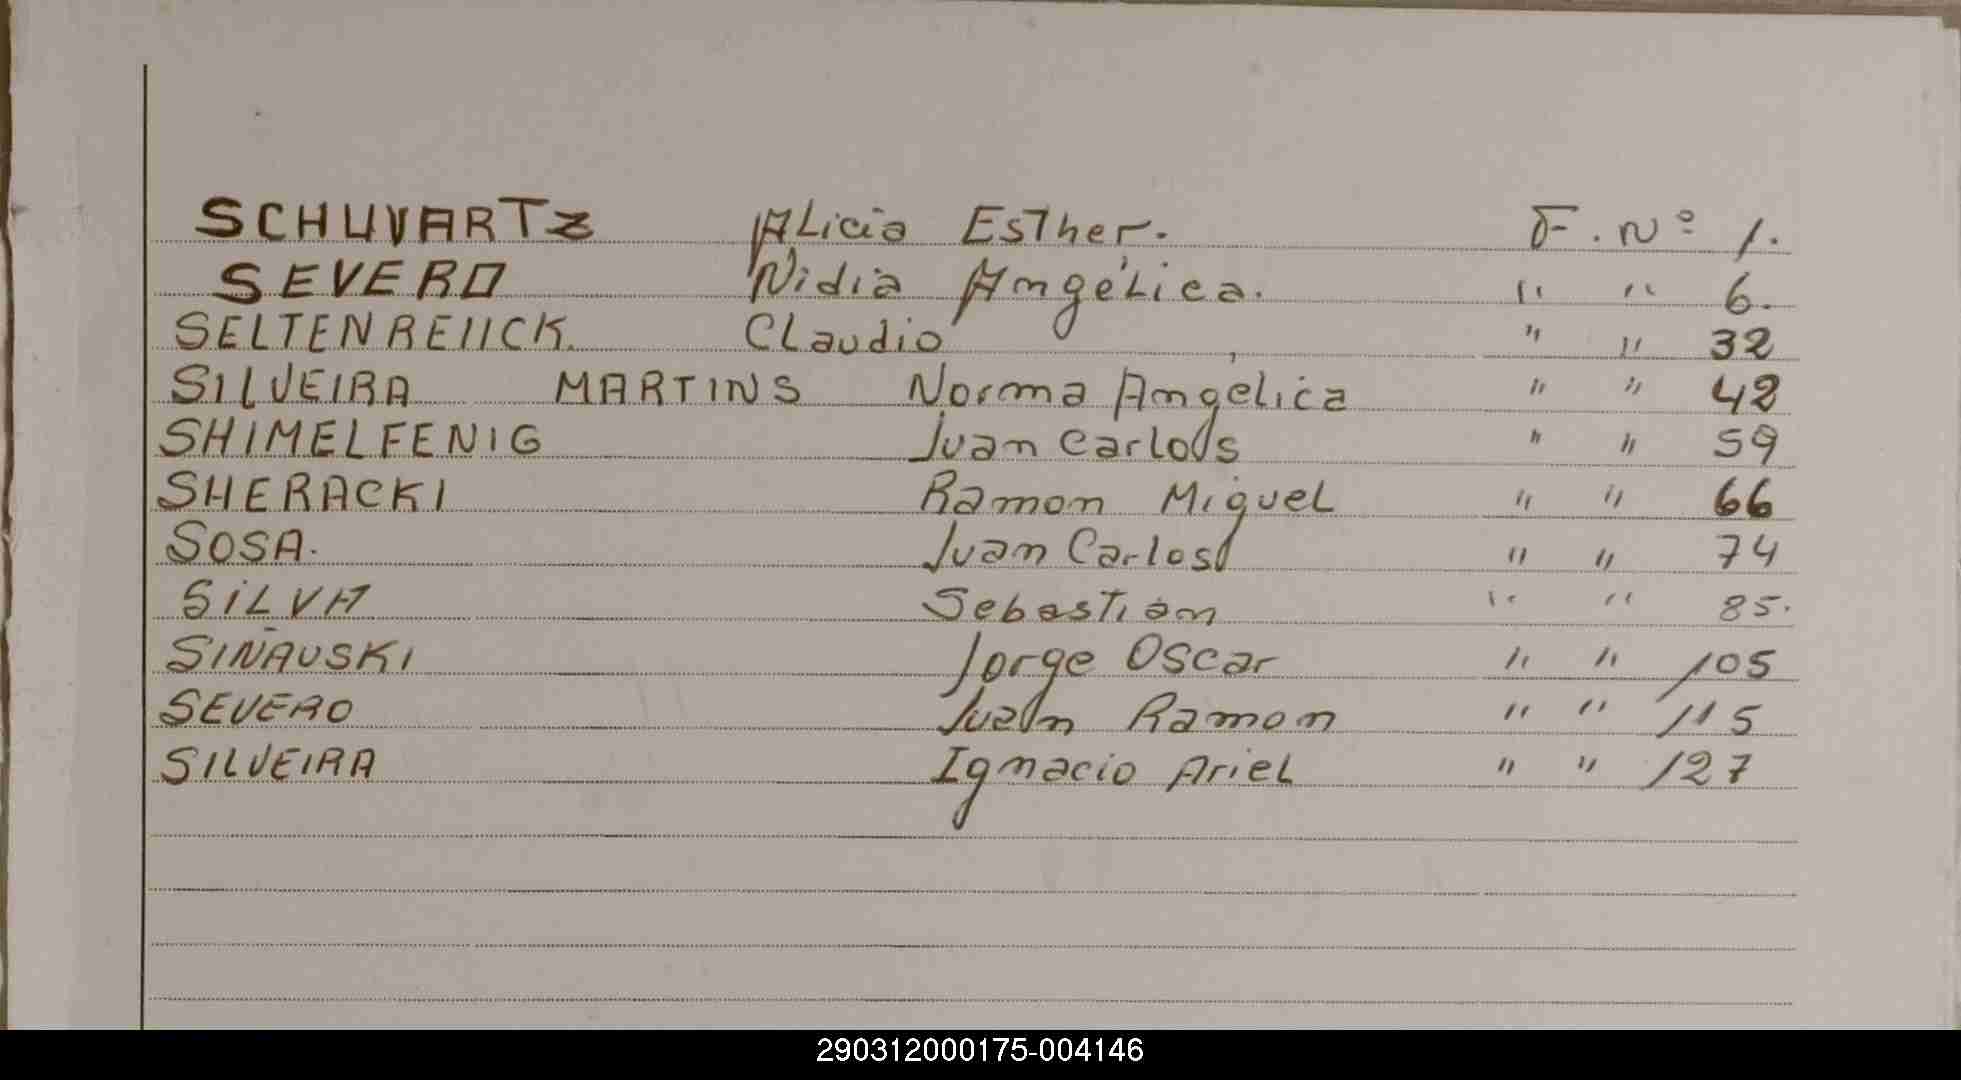 SCHUVARTZ ALicia Esther. F. Nº 1.
SEVERO Nidia AngéLica. " " 6.
SELTENREIICK. CLaudio " " 32
SILVEIRA MARTINS Norma Angélica " " 42
SHIMELFENIG Juan Carlos " " 59
SHERACKI Ramon MigueL " " 66
SOSA. Juan Carlos " " 74
SiLVA Sebastian " " 85.
SIÑAUSKI Jorge Oscar " " 105
SEVERO Juan Ramon " " 115
SILVEIRA Ignacio ArieL " " 127
290312000175-004146